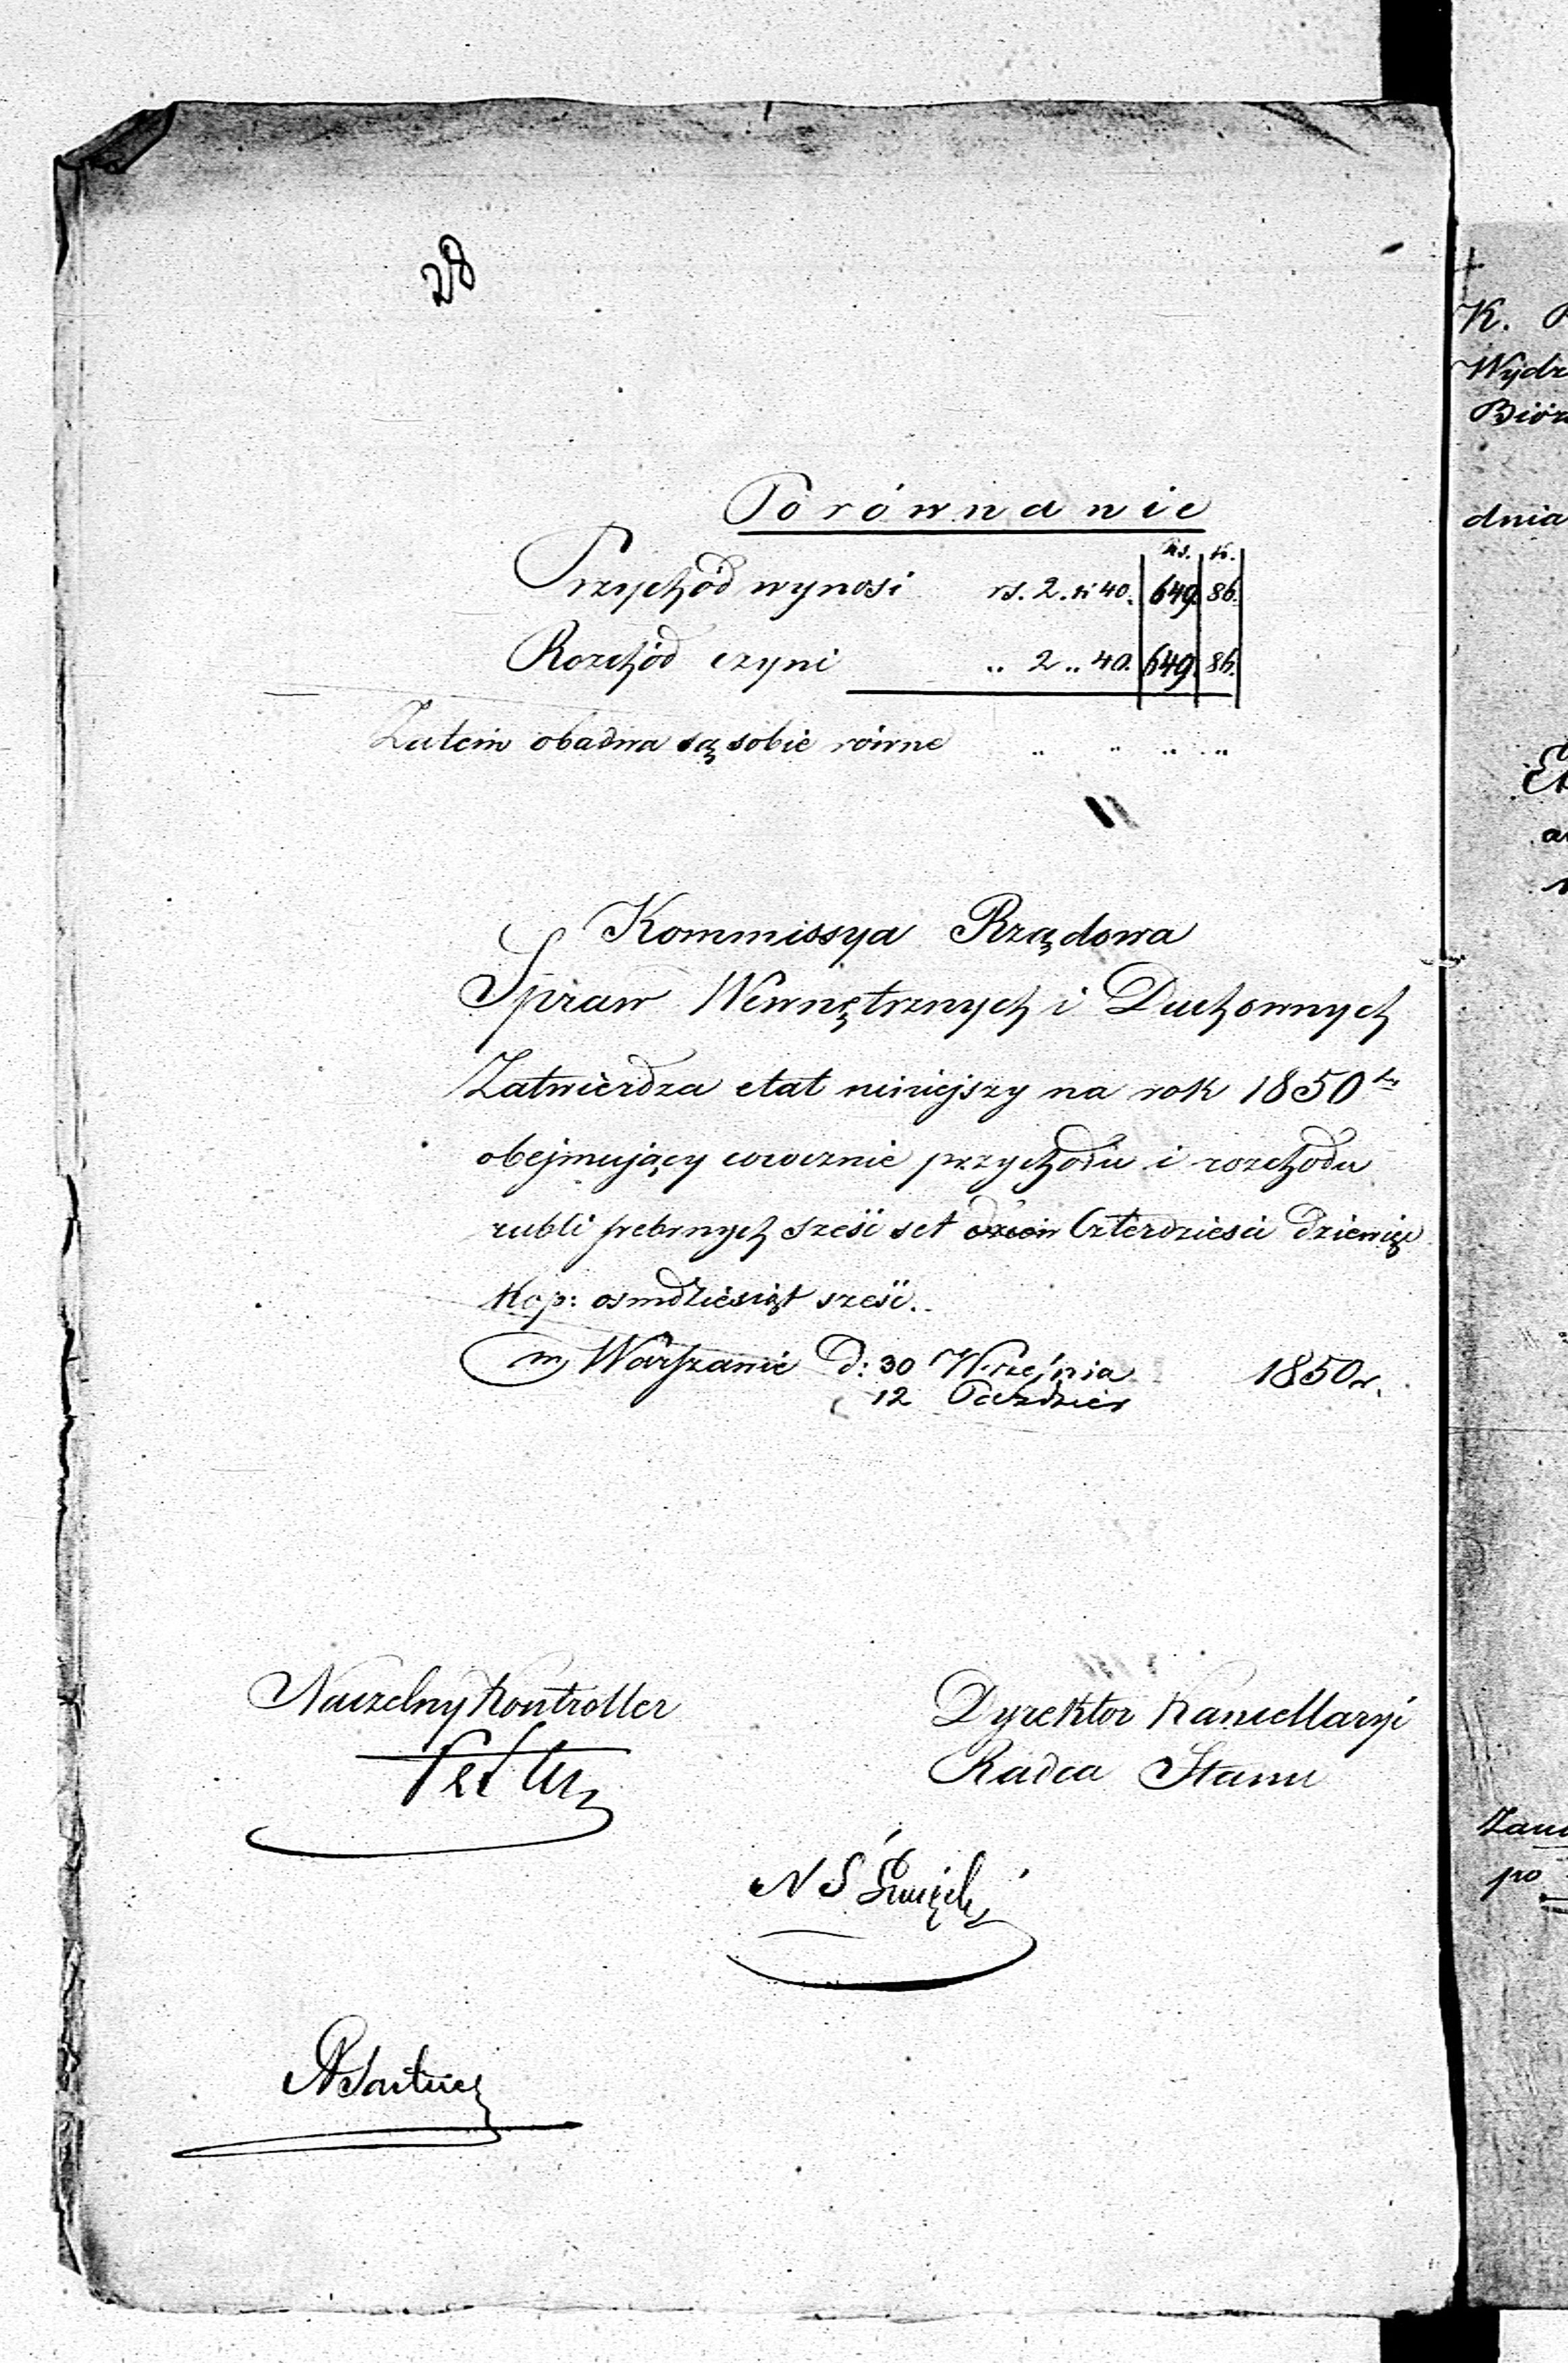 28
Porównanie
Rs. k.
Przychód wynosi rs. 2. k 40. 649. 86.
Rozchód czyni „ 2 „ 40. 649. 86.
Zatem obadwa są sobie równe „ „ „ „
Kommissya Rządowa
Spraw Wewnętrznych i Duchownych
Zatwierdza etat niniejszy na rok 1850
obejmujący corocznie przychodu i rozchodu
rubli srebrnych sześć set Czterdzieści dziewięć
Kop: osmdziesiąt sześć.
w Warszawie D: 30 Września 1850 r.
12 Paździer
Naczelny Kontroller
Dyrektor Kancellaryi
Radca Stanu
K.
Wydz
Biór
dnia
po